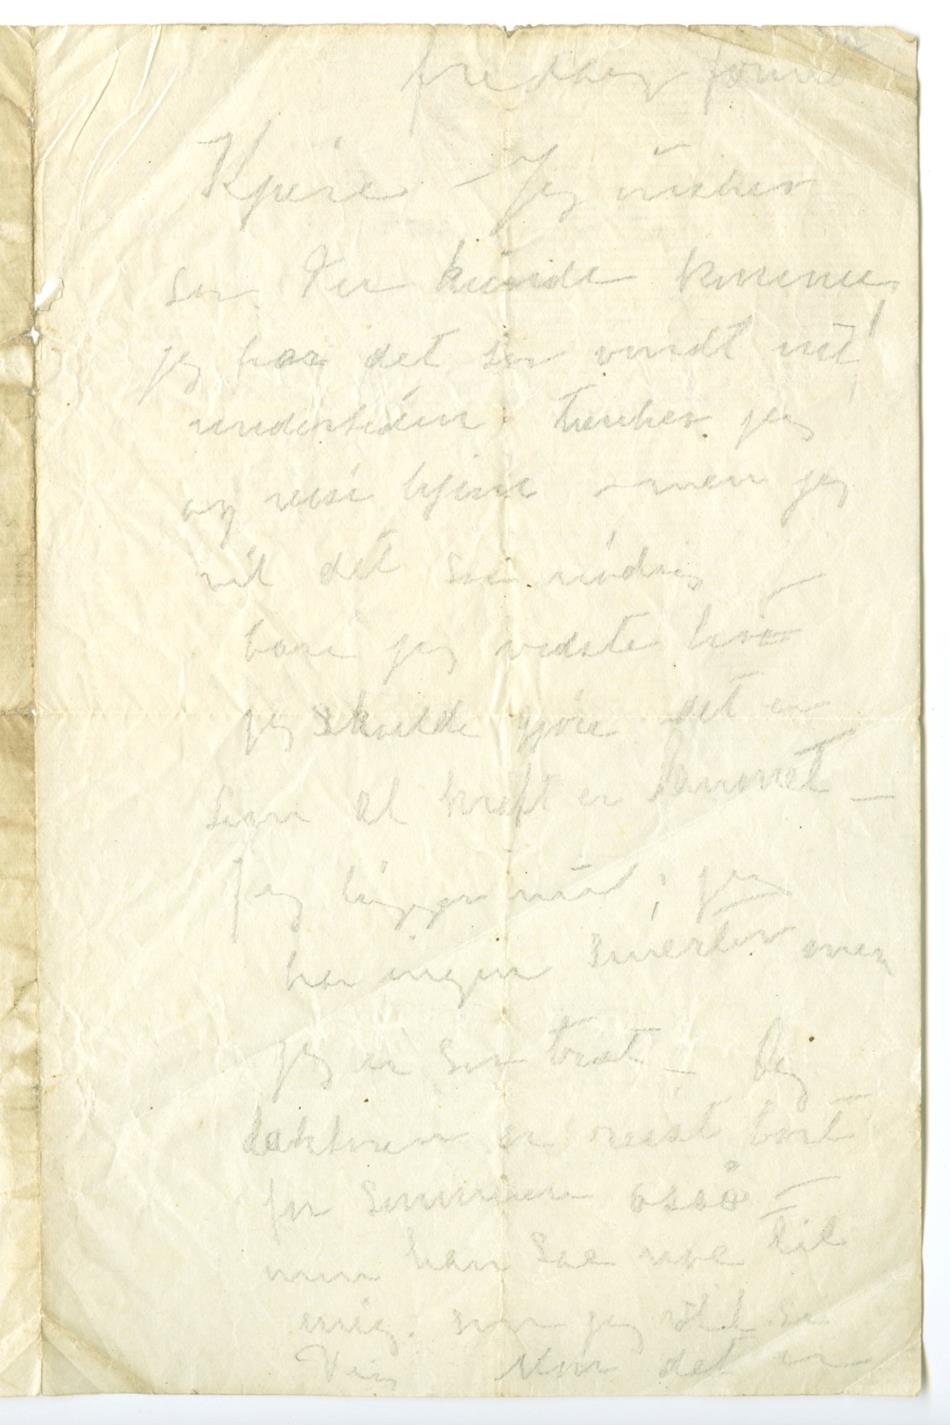 fredag form
Kjære – Jeg ønsker
saa Du kunde komme
jeg har det saa ondt nu!
undertiden tænker jeg
og reise hjem – men jeg
vil det saa nødig –
bare jeg vidste hva
jeg skulde gjøre det er
som al kraft er lammet –
Jeg ligger nu; jeg
har ingen smerter men
jeg er saa træt – Og
doktoren er reist bort
for sommeren også –
men han saa noe til
mig. som jeg vil se
Dig det er